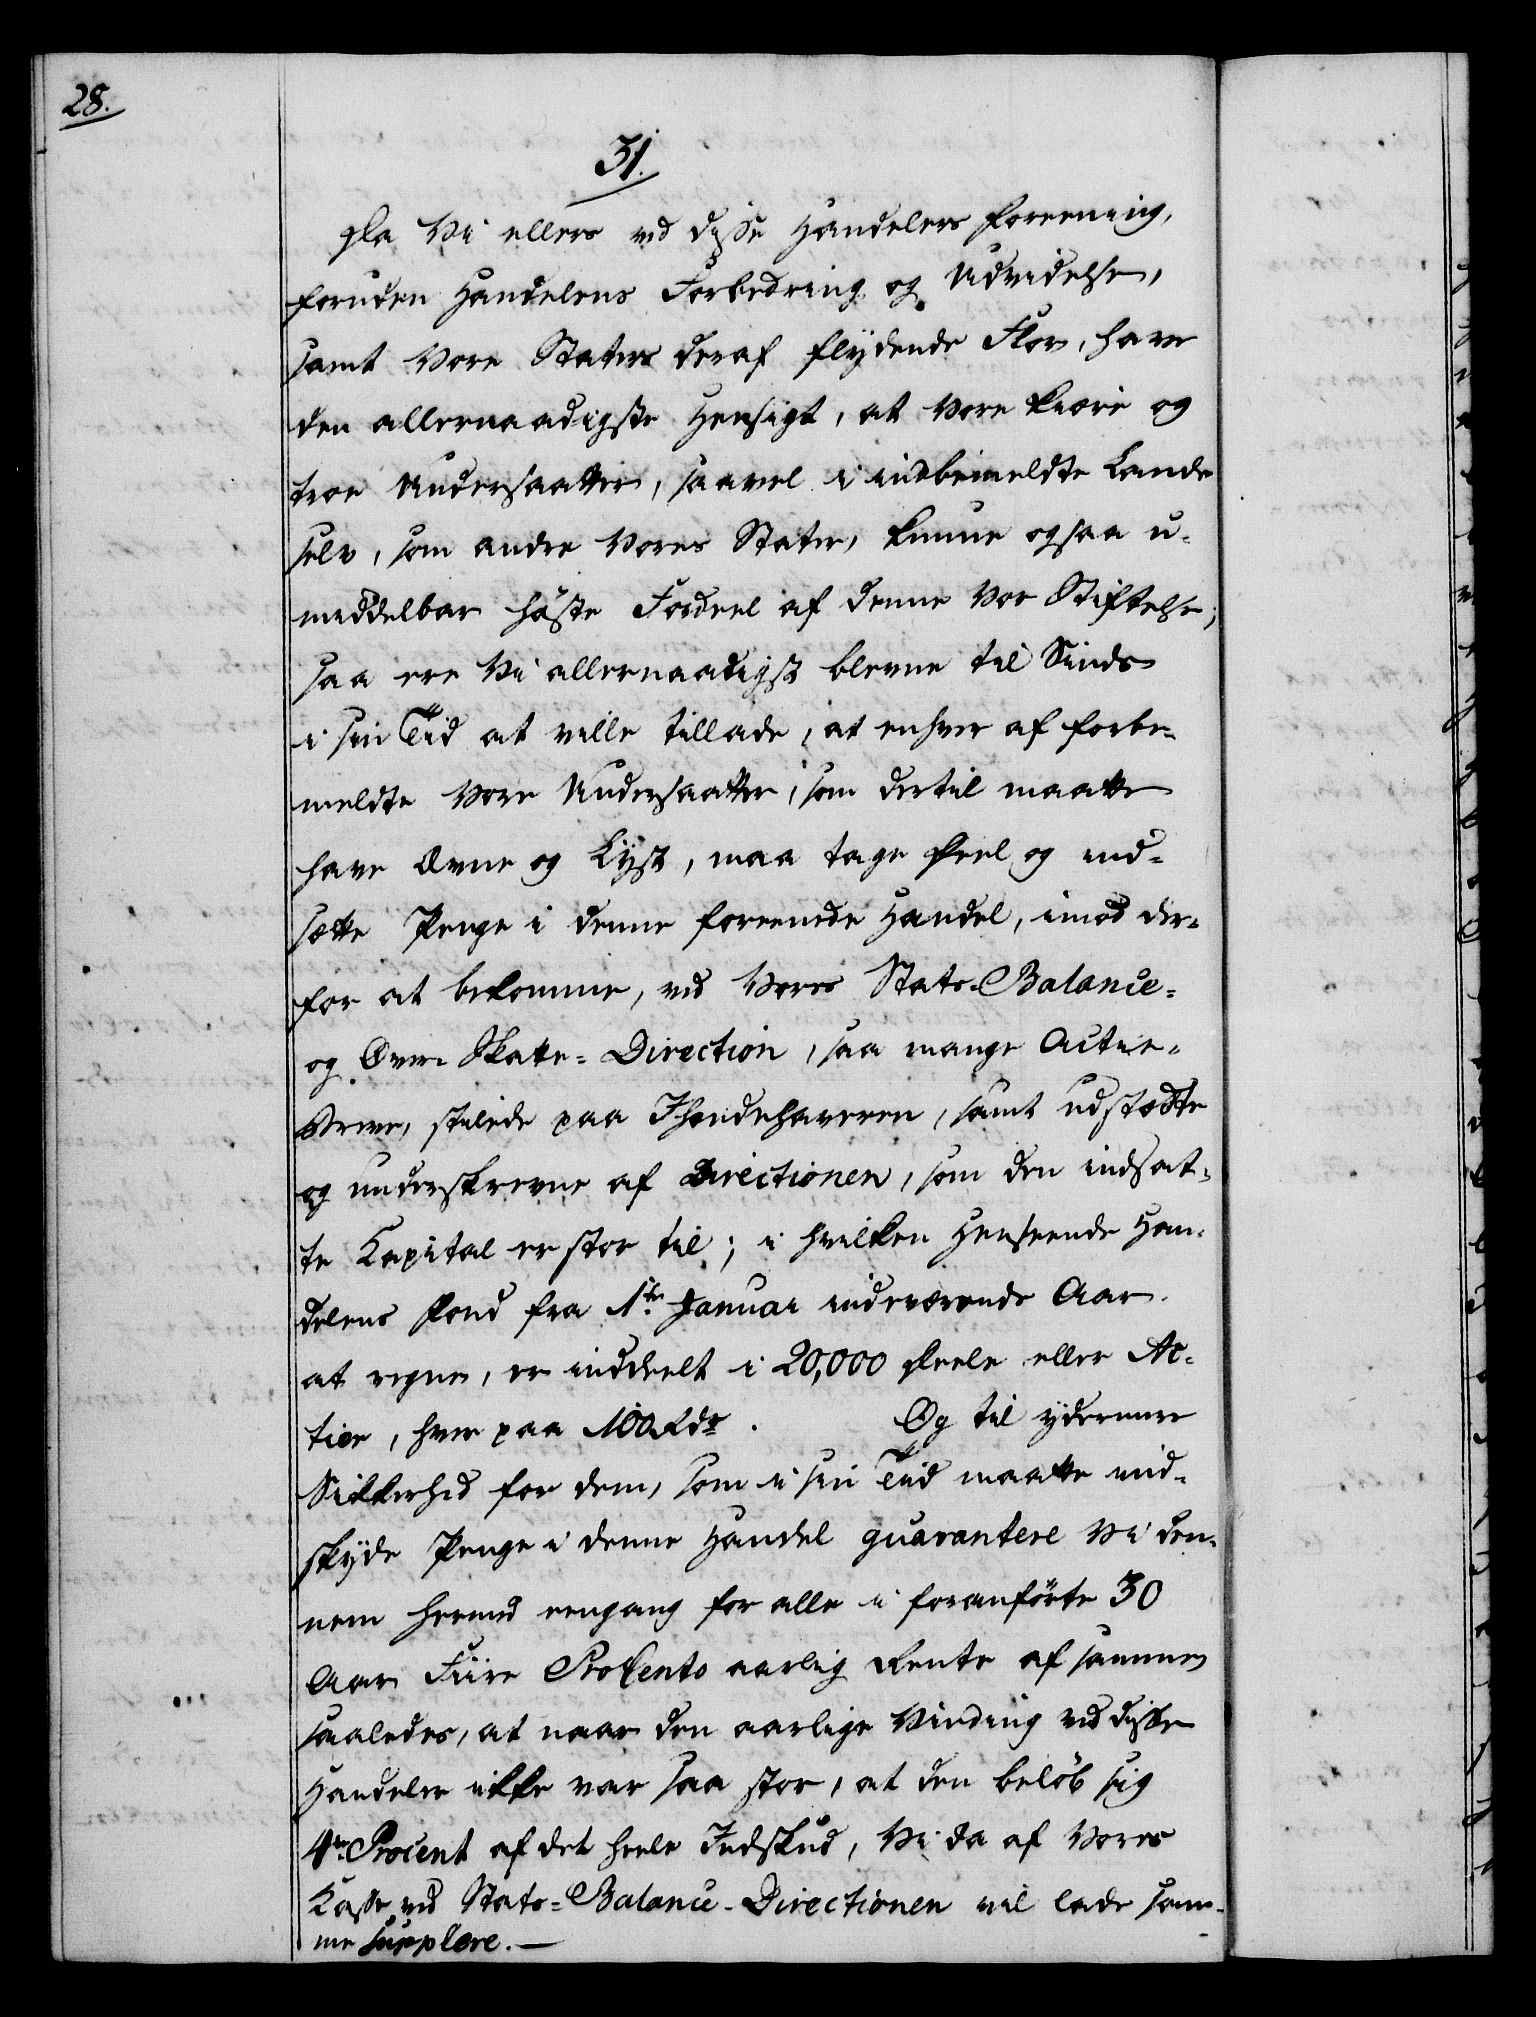 28.
31.
Da Vi ellers ved disse Handelers Foreening,
foruden Handelens Forbedring og Udvidelse,
samt Vore Staters deraf flydende Flor, have
den allernaadigste Hensigt, at Vore kiære og
troe Undersaatter, saavel i indbemeldte Lande
selv, som andre Vores Stater, kunne ogsaa u-
middelbar høste Fordeel af denne Vor Stiftelse;
saa ere Vi allernaadigst blevne til Sinds
i sin Tiid at ville tillade, at enhver af forbe-
meldte Vore Undersaatter, som dertil maatte
have Ævne og Lyst, maa tage Deel og ind-
sætte Penge i denne foreenede Handel, imod der-
for at bekomme, ved Vores Stats-Balance-
og Over-Skatte-Direction, saa mange Actie-
Breve, stilede paa Ihændehaveren, samt udstædte
og underskrevne af Directionen, som den indsat-
te Kapital er stor til; i hvilken Henseende Han-
delens Fond fra 1te Januar indeværende Aar
at regne, er inddeelt i 20,000 Deele eller Ac-
tier, hver paa 100 Rdr. Og til ydermere
Sikkerhed for dem, som i sin Tiid maatte ind-
skyde Penge i denne Handel guarantere Vi den-
nem hermed eengang for alle i foranførte 30
Aar Fiire ProCento aarlig Rente af samme
saaledes, at naar den aarlige Vinding ved disse
Handeler ikke var saa stor, at den beløb sig
4re Procent af det heele Indskud, Vi da af Vores
Kasse ved Stats-Balance-Directionen vil lade sam-
me supplere. —